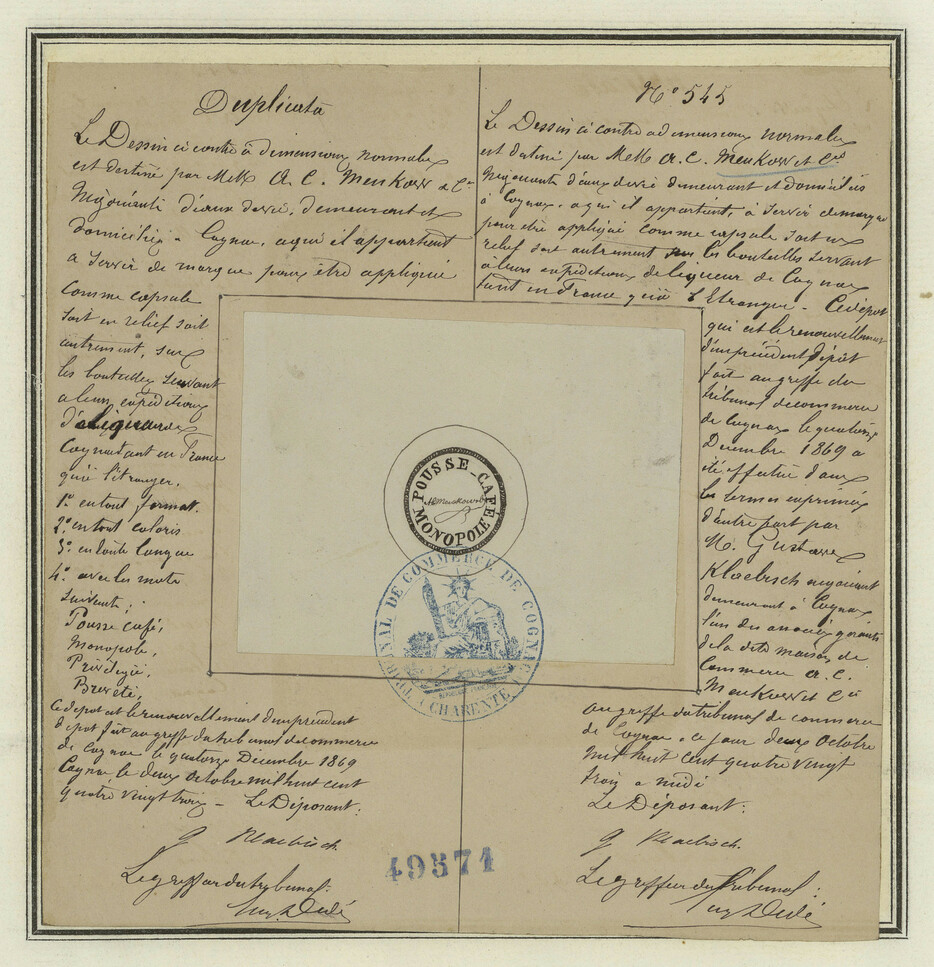 Duplicata
Le Dessin ci contre à dimensions normales
est destiné par MM A. C. Meukow & Cie
Négociants d'eaux de vie, demeurant et
domiciliés à Cognac, a qui il appartient
a servir de marque pour être appliqué
Comme capsule
soit en relief soit
autrement, sur
les bouteilles servant
a leurs expéditions
de liqueur de
Cognac tant en France
qu'à l'étranger.
1° en tout format.
2° en tout coloris
3° en toute langue
4° avec les mots
suivants:
Pousse café,
Monopole,
Privilégié,
Breveté,
Ce dépot est le renouvellement d'un précédent
dépot fait au greffe du tribunal de commerce
de Cognac le quatorze Décembre 1869
Cognac, le deux Octobre mil huit cent
quatre vingt trois - Le Déposant:
G Klaebisch
Le greffier du tribunal:
N° 545
Le Dessin ci contre a dimensions normales
est destiné par MM A. C. Meukow et Cie
Négociants d'eaux de vie demeurant et domiciliés
à Cognac, a qui il appartient, à servir de marque
pour être appliqué comme capsule soit en
relief soit autrement sur les bouteilles servant
à leurs expéditions de liqueur de Cognac
tant en France qu'à l'Etranger - Ce dépot
qui est le renouvellement
d'un précédent dépôt
fait au greffe du
tribunal de commerce
de Cognac le quatorze
Décembre 1869 a
été effectué dans
les termes exprimés
d'autre part par
M. Gustave
Klaebisch négociant
demeurant à Cognac
l'un des associés gérants
de la dite maison de
Commerce A. C.
Meukow et Cie
au greffe du tribunal de commerce
de Cognac, ce jour deux Octobre
mil huit cent quatre vingt
trois a midi
Le Déposant:
G Klaebisch.
Le greffier du Tribunal:
POUSSE-CAFE
MONOPOLE
TRIBUNAL DE COMMERCE DE COGNAC
CHARENTE
49371